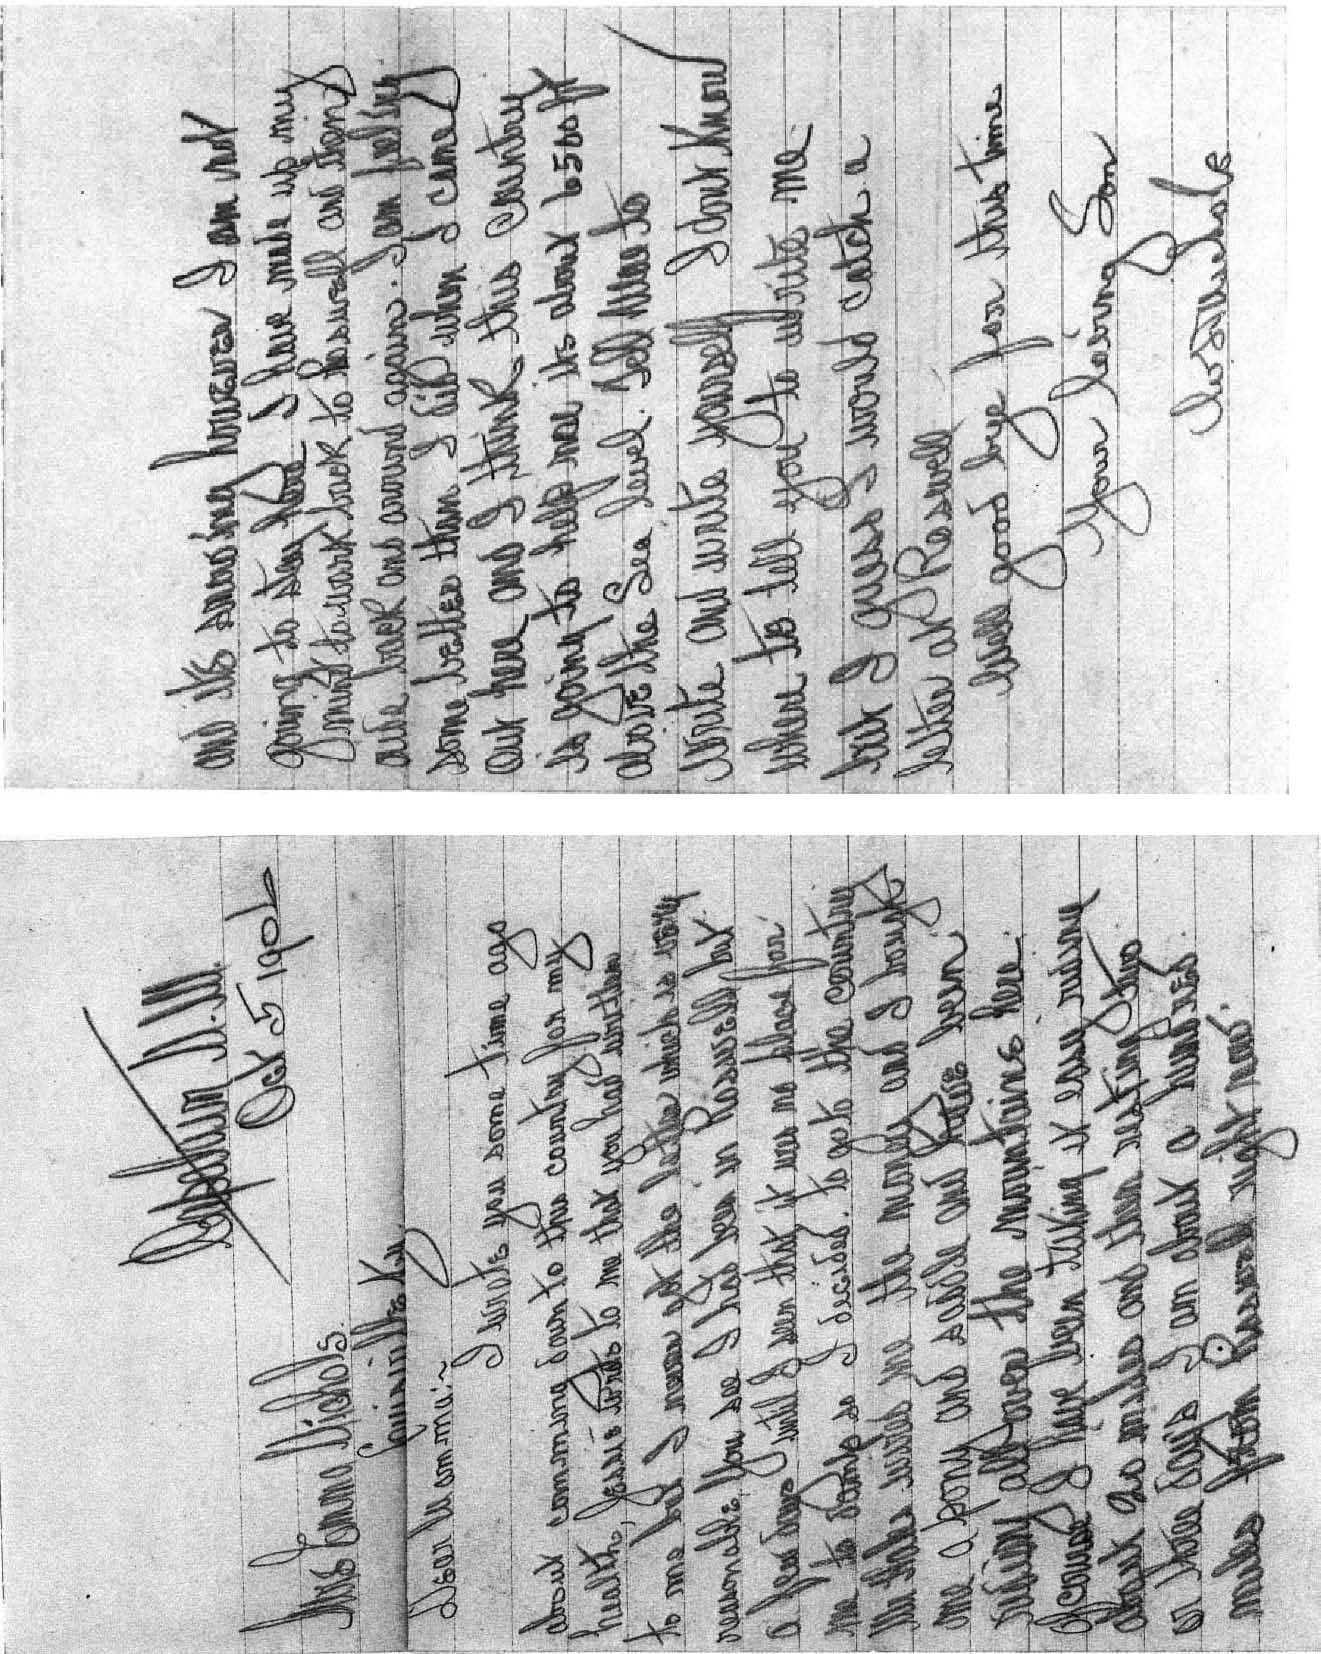 Capitan N.M.
Oct 5 190
Mrs Emma Nichols.
Ky
Dear Mamma:-
I wrote you some time ago
about comming down to this country for my
health, Jessie wrote to me that you had written
to me but I never got the letter which is very
reasonable, you see I had been in Roswell but
a few days until I seen that it was no place for
me to so I decided to go to the country
Mr wired me the money and I bought
me a pony and saddle and have been
riding all over the mountians here.
I have been taking it easy riding
about 20 miles and then resting two
or three days I am about a hundred
miles from Roswell right now.
and its snowing however I am not
going to stay here I have made up my
mind to work back to Roswell and then
ride back and around again. I am feeling
some better than I did when I came
out here and I think this country
is going to help me its about 6500 ft
above the sea level. Tell Mae to
write and write yourself I dont know
where to tell you to write me
but I guess I would catch a
letter at Roswell.
Well good bye for this time
Your loving Son
Nichols